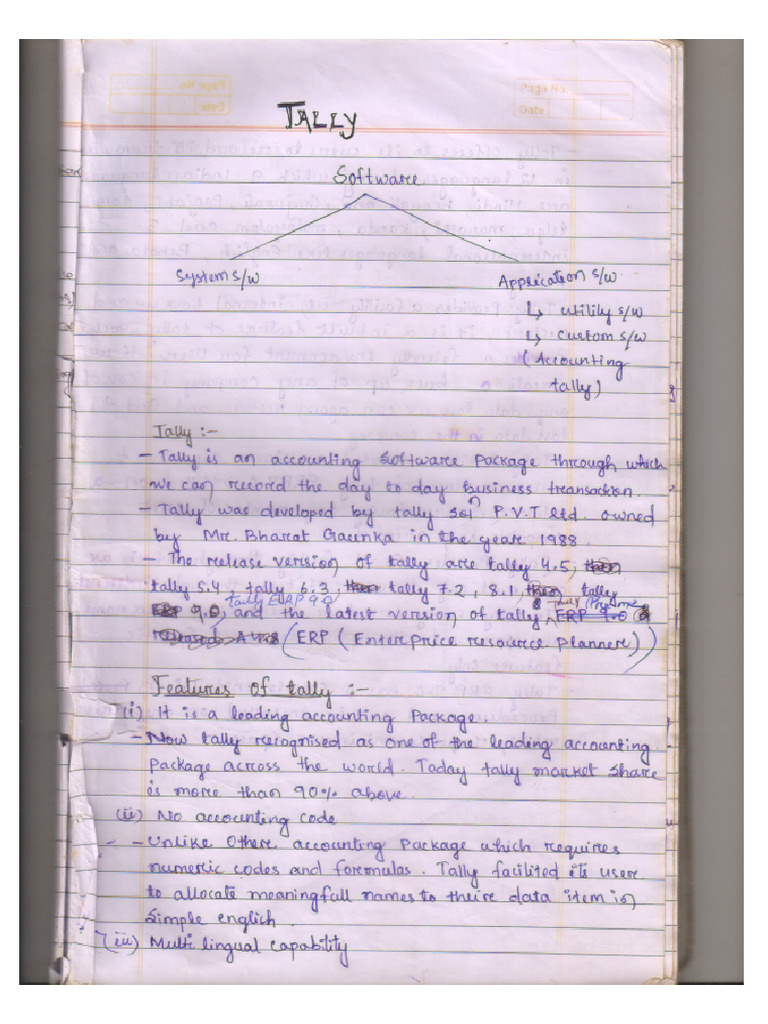 Page No
Date
TALLY
Software
System s/w
Application s/w
↳ utility s/w
↳ custom s/w
(Accounting
tally)
Tally :-
- Tally is an accounting software package through which
we can record the day to day business transaction.
- Tally was developed by tally soln P.V.T Ltd. owned
by Mr. Bharat Gaenka in the year 1988.
- The release version of tally are tally 4.5,
tally 5.4, tally 6.3, tally 7.2, 8.1 tally
9.0, tally ERP 9.0 and the latest version of tally ERP 9.0 tally Prime
(ERP (Enterprice resource planner))
Features of tally :-
(i) It is a leading accounting Package.
- Now tally recognised as one of the leading accounting
package across the world. Today tally market share
is more than 90% above.
(ii) No accounting code
- - Unlike other accounting Package which requires
numeric codes and formulas. Tally facilited its user
to allocate meaningfull names to their data item in
simple english.
(iii) Multi lingual capability